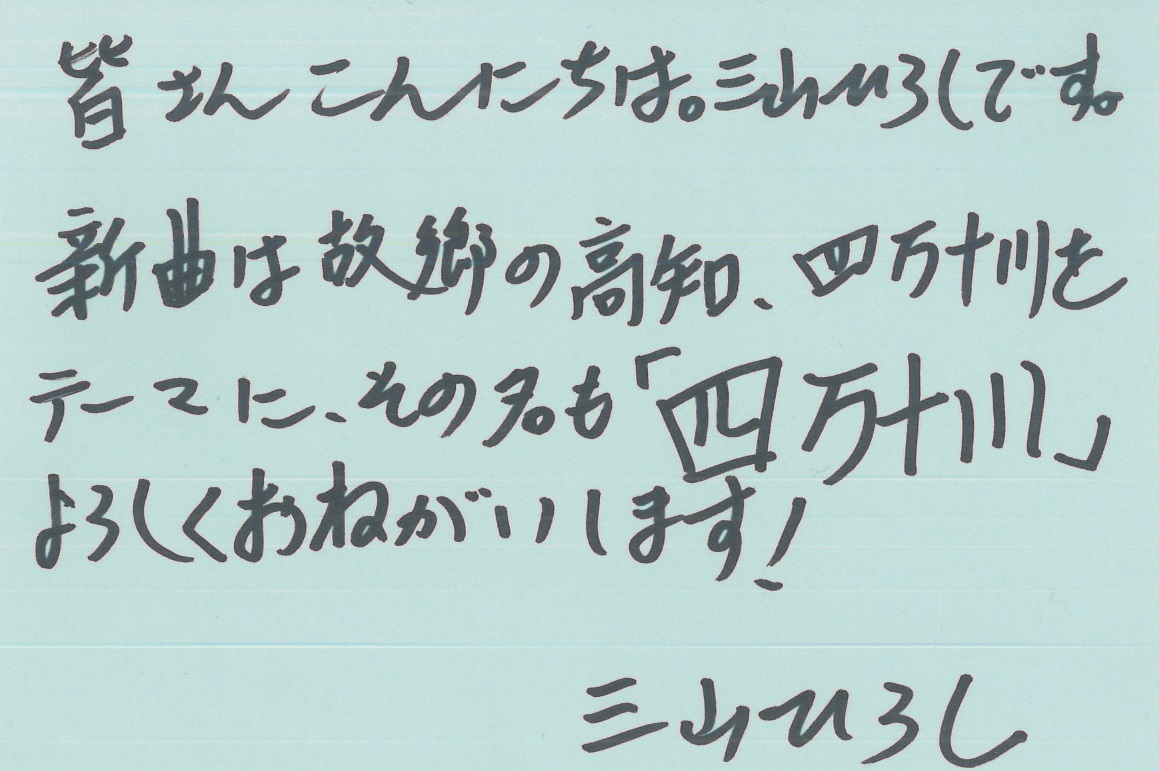 皆さんこんにちは。三山ひろしです。
新曲は故郷の高知、四万十川を
テーマに、その名も「四万十川」
よろしくおねがいします!
三山ひろし